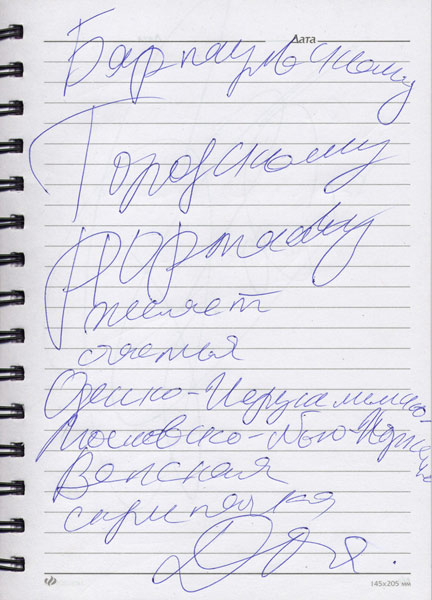 Дата
Барнаульскому
Городскому
Порталу
желает
счастья
Одесско-Иерусалимско-
Московско-Нью-Йоркско
Венская
скрипачка
Дора.
145x205 мм